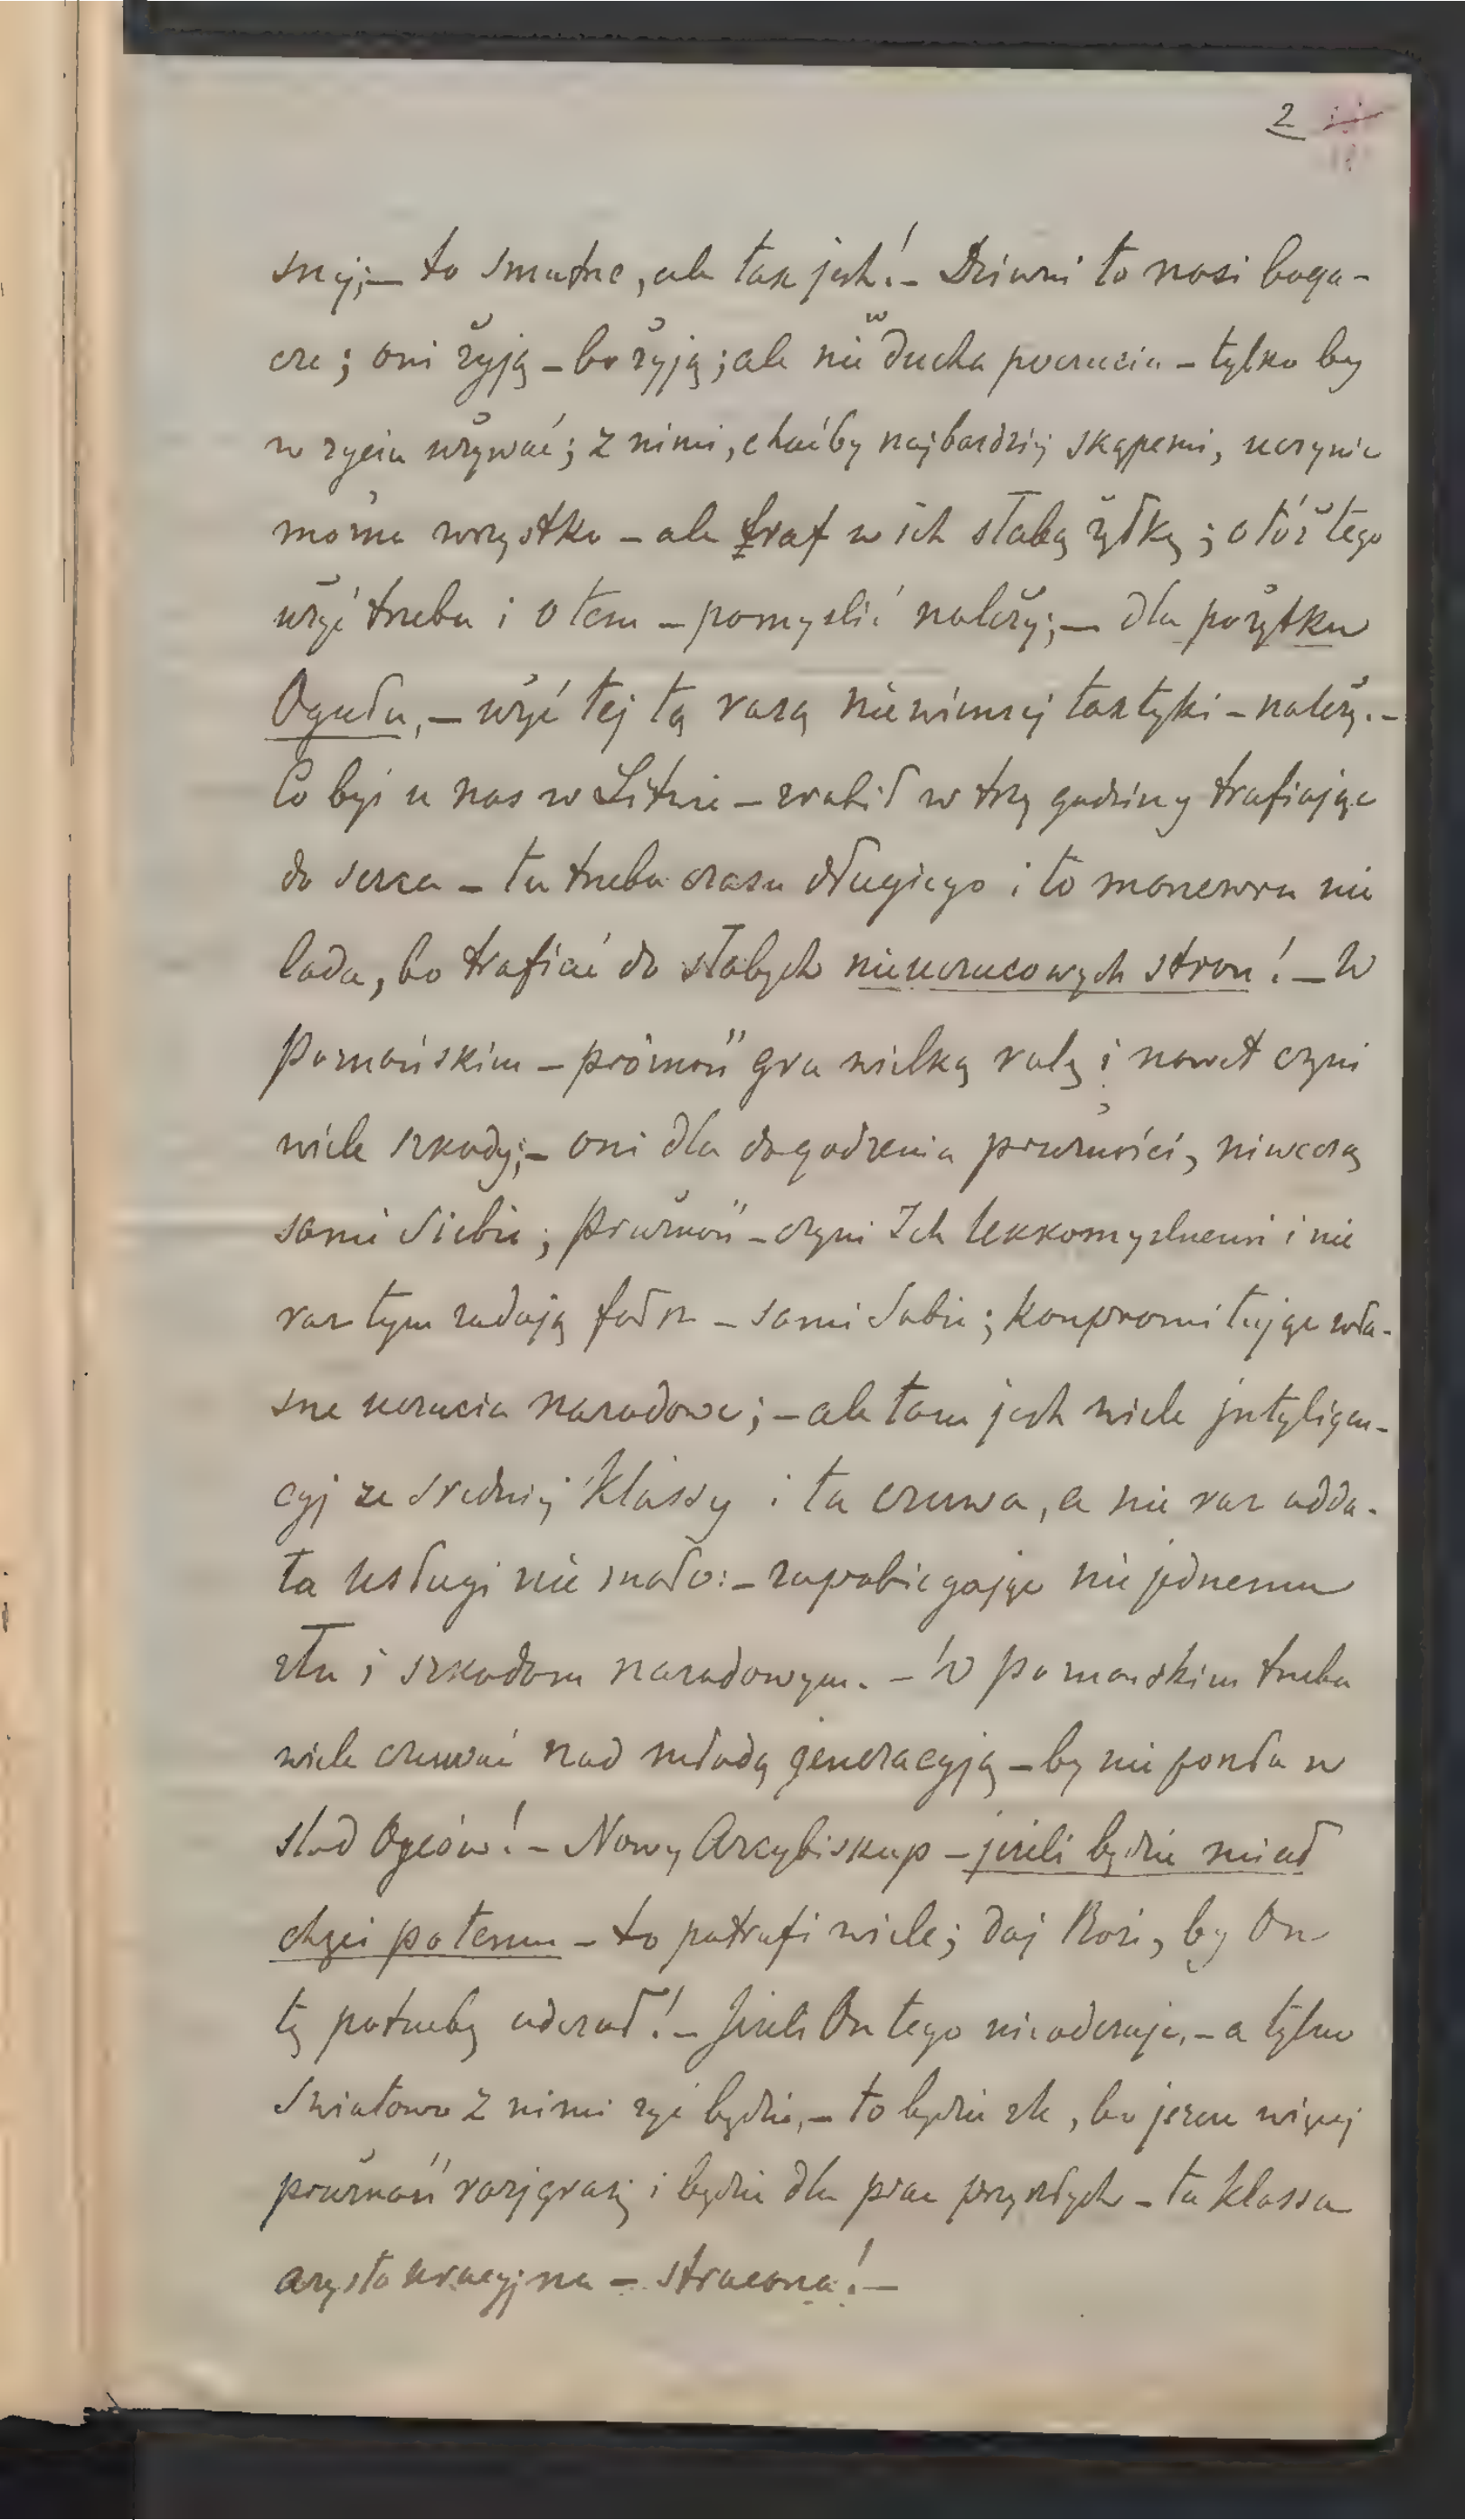 2
snej;— to smutne, ale tak jest!– Dziwni to nasi boga-
cze; oni żyją – bo żyją; ale nie w ducha poczuciu – tylko by
w życiu używać; z nimi, choćby najbardziej skąpemi, uczynić
można wszystko – ale traf w ich słabą żyłkę; otóż tego
użyć trzeba i o tem – pomyślić należy;— dla pożytku
Ogułu, — użyć tej tą razą niewinnej taktyki – należy.–
Co byś u nas w Litwie – zrobił w trzy godziny trafiając
do serca – tu trzeba czasu długiego i to manewru nie
lada, bo trafiać do słabych nieuczucowych stron! — W
Poznańskim – próżność gra wielką rolę i nawet czyni
wiele szkody;– oni dla dogodzenia prużności, niweczą
sami siebie; prużność – czyni Ich lekkomyślnemi i nie
raz tym zadają fałsz – sami sobie; kompromitując wła-
sne uczucia narodowe; – ale tam jest wiele jntyligen-
cyj ze średniej klassy i ta czuwa, a nie raz odda-
ła usługi nie mało:– zapobiegając nie jednemu
złu i szkodom narodowym. – W Poznańskim trzeba
wiele czuwać nad młodą generacyją – by nie poszła w
ślad Ojców! – Nowy Arcybiskup – jeżeli będzie miał
chęci potemu – to potrafi wiele; daj Boże, by On
tę potrzebę odczuł! – Jeżeli On tego nieodczuje, – a tylko
światowo z nimi żyć będzie, – to będzie źle, bo jeszcze więcej
prużność rozjgrasię i będzie dla prac przyszłych – ta klassa
arystokracyjna – stracona! —